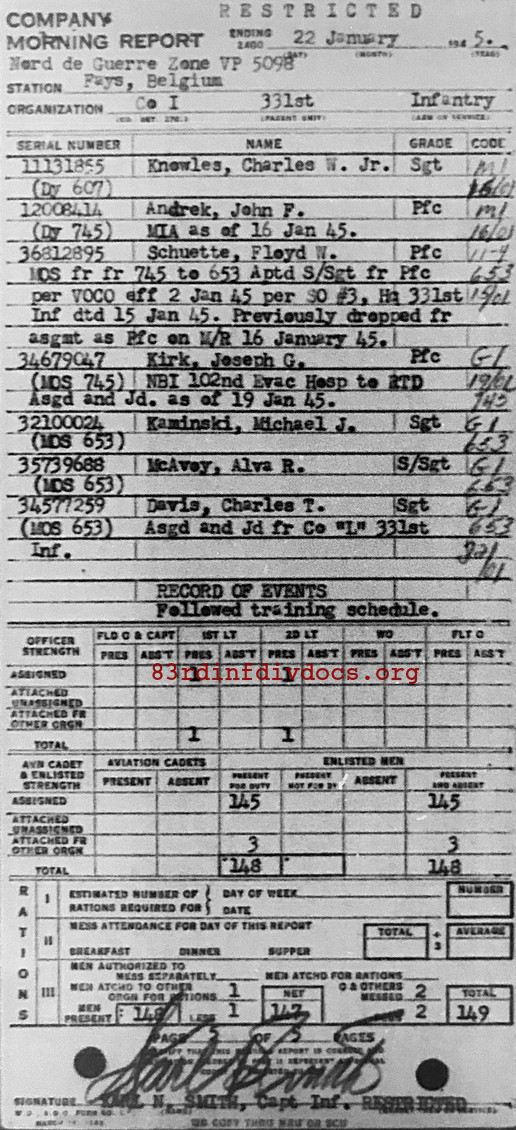 RESTRICTED
COMPANY
MORNING REPORT ENDING 2400 22 January 1945.
(DAY) (MONTH) (YEAR)
Nord de Guerre Zone VP 5098
STATION Fays, Belgium
ORGANIZATION Co I 331st Infantry
(PARENT UNIT) (ARM OR SERVICE)
SERIAL NUMBER NAME GRADE CODE
11131855 Knowles, Charles W. Jr. Sgt M1
(Dy 607) 16/01
12008414 Andrek, John F. Pfc M1
(Dy 745) MIA as of 16 Jan 45. 16/01
36812895 Schuette, Floyd W. Pfc 11-4
MOS fr fr 745 to 653 Aptd S/Sgt fr Pfc 653
per VOCO eff 2 Jan 45 per SO #3, Hq 331st 15/01
Inf dtd 15 Jan 45. Previously dropped fr
asgmt as Pfc on M/R 16 January 45.
34679047 Kirk, Joseph G. Pfc G-1
(MOS 745) NBI 102nd Evac Hosp to RTD 19/01
Asgd and Jd. as of 19 Jan 45. 745
32100024 Kaminski, Michael J. Sgt G-1
(MOS 653) 653
35739688 McAvoy, Alva R. S/Sgt G-1
(MOS 653) 653
34577259 Davis, Charles T. Sgt G-1
(MOS 653) Asgd and Jd fr Co "L" 331st 653
Inf. 22/
01
RECORD OF EVENTS
Followed training schedule.
OFFICER STRENGTH FLD O & CAPT 1ST LT 2D LT WO FLT O
PRES ABS'T PRES ABS'T PRES ABS'T PRES ABS'T PRES ABS'T
ASSIGNED 1 1
83rdinfdivdocs.org
ATTACHED UNASSIGNED
ATTACHED FR OTHER ORGN
TOTAL 1 1
AVN CADET & ENLISTED STRENGTH AVIATION CADETS ENLISTED MEN
PRESENT ABSENT PRESENT FOR DUTY PRESENT NOT FOR DY ABSENT PRESENT AND ABSENT
ASSIGNED 145 145
ATTACHED UNASSIGNED
ATTACHED FR OTHER ORGN 3 3
TOTAL 148 148
RATIONS
I ESTIMATED NUMBER OF RATIONS REQUIRED FOR { DAY OF WEEK DATE NUMBER
II MESS ATTENDANCE FOR DAY OF THIS REPORT TOTAL ÷ 3 AVERAGE
BREAKFAST DINNER SUPPER
III MEN AUTHORIZED TO MESS SEPARATELY MEN ATCHD FOR RATIONS
MEN ATCHD TO OTHER ORGN FOR RATIONS 1 NET O & OTHERS MESSED 2 TOTAL
MEN PRESENT 148 LESS 1 147 2 149
PAGE 5 OF 5 PAGES
SIGNATURE KARL N. SMITH, Capt Inf. RESTRICTED